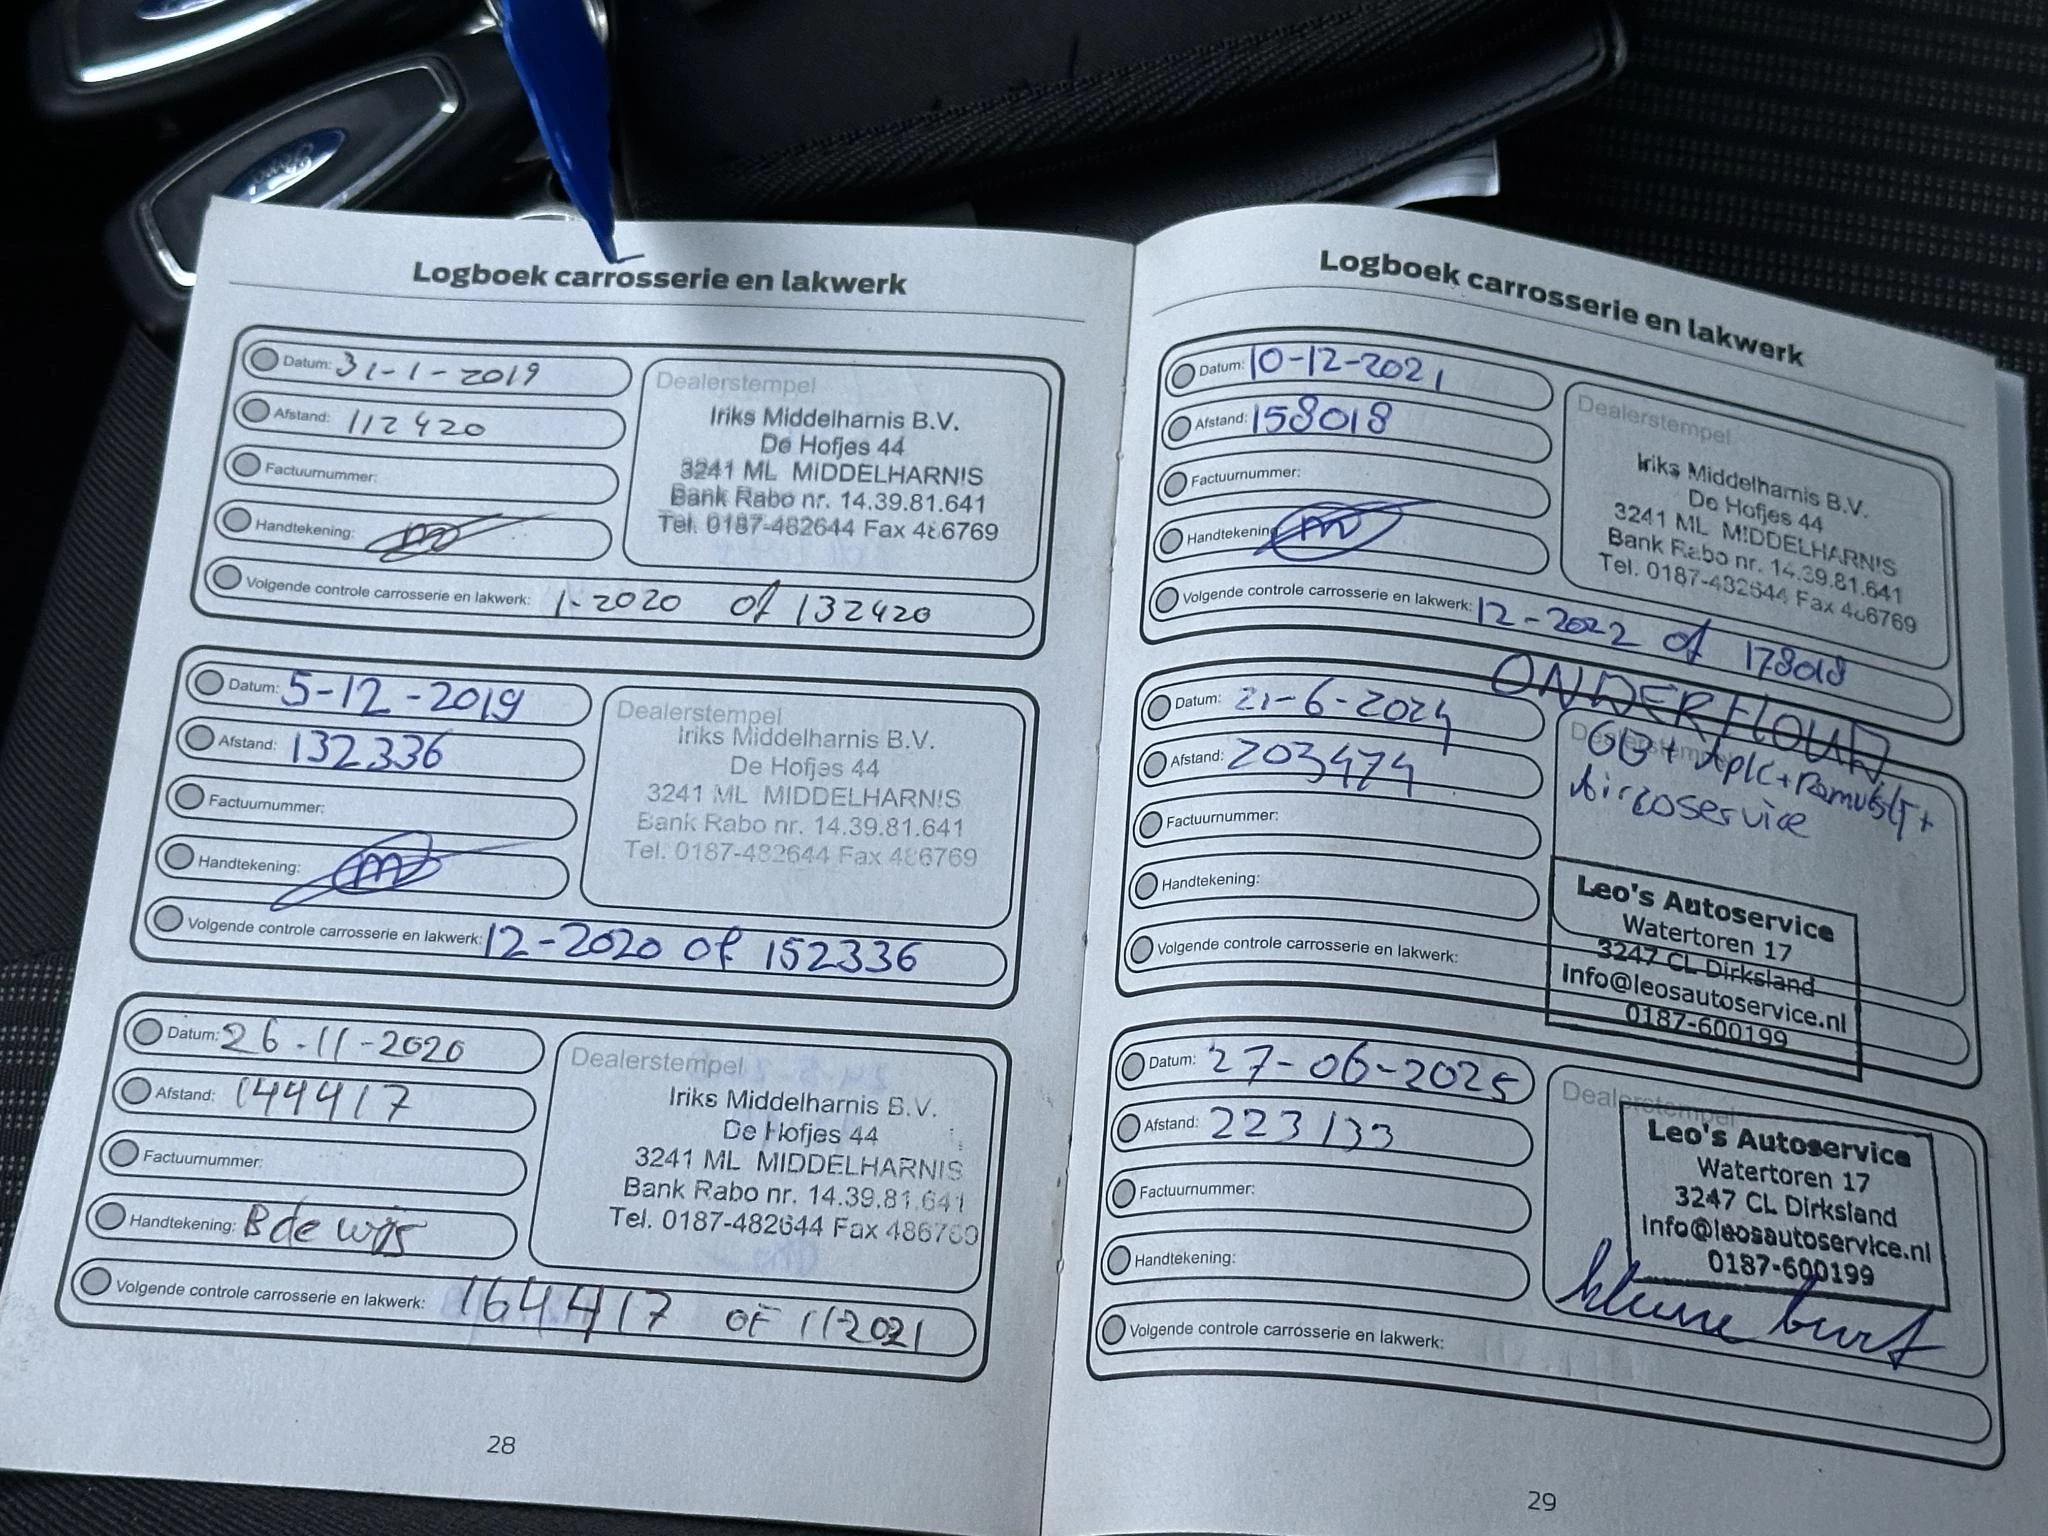 Ford
Logboek carrosserie en lakwerk
Datum: 31-1-2019
Afstand: 112420
Factuurnummer:
Handtekening:
Volgende controle carrosserie en lakwerk: 1-2020 of 132420
Dealerstempel
Iriks Middelharnis B.V.
De Hofjes 44
3241 ML MIDDELHARNIS
Bank Rabo nr. 14.39.81.641
Tel. 0187-482644 Fax 486769
Datum: 5-12-2019
Afstand: 132336
Factuurnummer:
Handtekening:
Volgende controle carrosserie en lakwerk: 12-2020 of 152336
Dealerstempel
Iriks Middelharnis B.V.
De Hofjes 44
3241 ML MIDDELHARNIS
Bank Rabo nr. 14.39.81.641
Tel. 0187-482644 Fax 486769
Datum: 26-11-2020
Afstand: 144417
Factuurnummer:
Handtekening: B de wijs
Volgende controle carrosserie en lakwerk: 164417 OF 11-2021
Dealerstempel
Iriks Middelharnis B.V.
De Hofjes 44
3241 ML MIDDELHARNIS
Bank Rabo nr. 14.39.81.641
Tel. 0187-482644 Fax 486769
28
Logboek carrosserie en lakwerk
Datum: 10-12-2021
Afstand: 158018
Factuurnummer:
Handtekening:
Volgende controle carrosserie en lakwerk: 12-2022 of 178018
Dealerstempel
Iriks Middelharnis B.V.
De Hofjes 44
3241 ML MIDDELHARNIS
Bank Rabo nr. 14.39.81.641
Tel. 0187-482644 Fax 486769
ONDERHOUD
Datum: 21-6-2024
Afstand: 203474
Factuurnummer:
Handtekening:
Volgende controle carrosserie en lakwerk:
Dealerstempel
GB + Apk +
Aircoservice
Leo's Autoservice
Watertoren 17
3247 CL Dirksland
info@leosautoservice.nl
0187-600199
Datum: 27-06-2025
Afstand: 223133
Factuurnummer:
Handtekening:
Volgende controle carrosserie en lakwerk:
Dealerstempel
Leo's Autoservice
Watertoren 17
3247 CL Dirksland
info@leosautoservice.nl
0187-600199
kleine burt
29